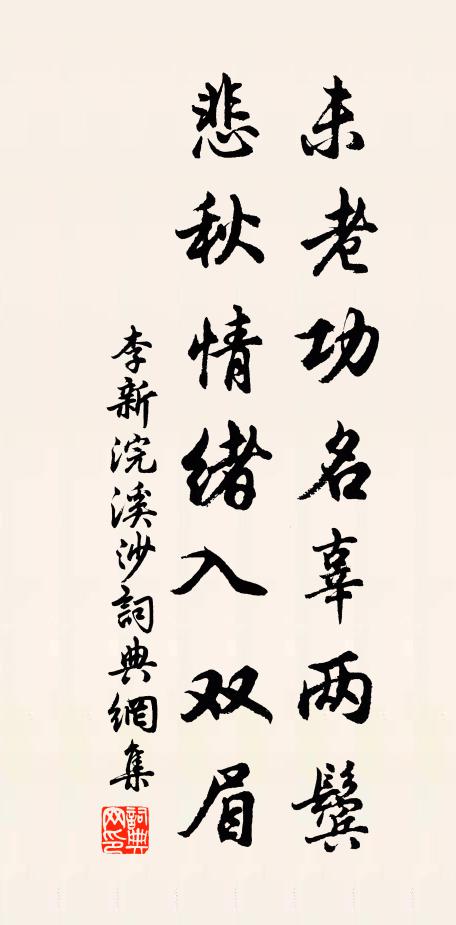 未老功名辜两鬓
悲秋情绪入双眉
李新浣溪沙詞典網集
詞典网印